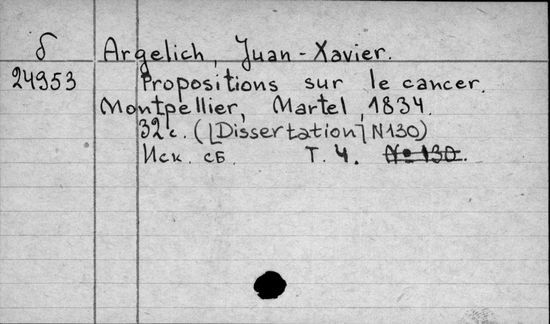 б Argelich, Juan-Xavier.
24953 Propositions sur le cancer.
Montpellier, Martel, 1834.
32 с. ([Dissertation] N130)
Иск. сб. Т. 4. № 130.